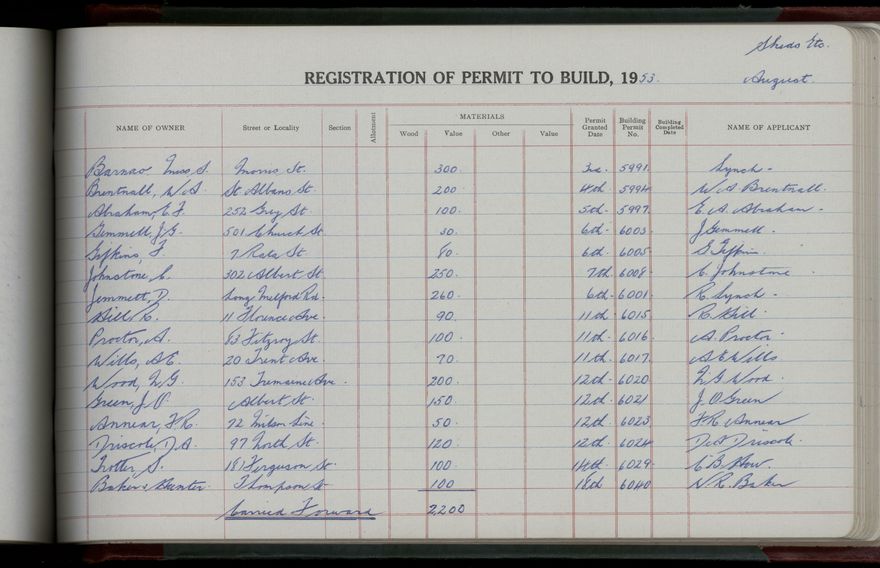 Sheds Etc.
REGISTRATION OF PERMIT TO BUILD, 1953. August.
NAME OF OWNER Street or Locality Section Allotment MATERIALS Wood Value Other Value Permit Granted Date Building Permit No. Building Completed Date NAME OF APPLICANT
Miss S. Morris St. 300. 3rd. 5991. Lynch -
Brentnall, W.A. St Albans St. 200. 4th - 5994. W.A. Brentnall.
Abraham, E.F. 252 Grey St. 100. 5th - 5997. E.A. Abraham -
Gemmell, J.G. 501 Church St. 30. 6th - 6003. J Gemmell.
Gifkins, F. 7 Rata St. 80. 6th - 6005. Gifkins.
Johnstone C. 302 Albert St. 250. 7th - 6008. C. Johnstone
Jemmett, D. Long Melford Rd. 260. 6th - 6001. R. Lynch -
Hill R. 11 Florence Ave. 90. 11th - 6015. R Hill.
Proctor, A. 83 Fitzroy St. 100. 11th - 6016. A. Proctor
Wills, A.E. 20 Trent Ave. 70. 11th. 6017. A E Wills
Wood, N.G. 153 Tremaine Ave. 200. 12th - 6020. N G Wood.
Green, J O. Albert St. 150. 12th - 6021. J. O Green
Annear, F.R. 22 Milson Line. 50. 12th. 6023. F R Annear
Driscoll, D.A. 97 North St. 120. 12th - 6024. D A Driscoll.
Trotter, S. 181 Ferguson St. 100. 14th. 6029.
Baker & Thompson St. 100 18th 6040 N. R. Baker
Carried Forward 2,200